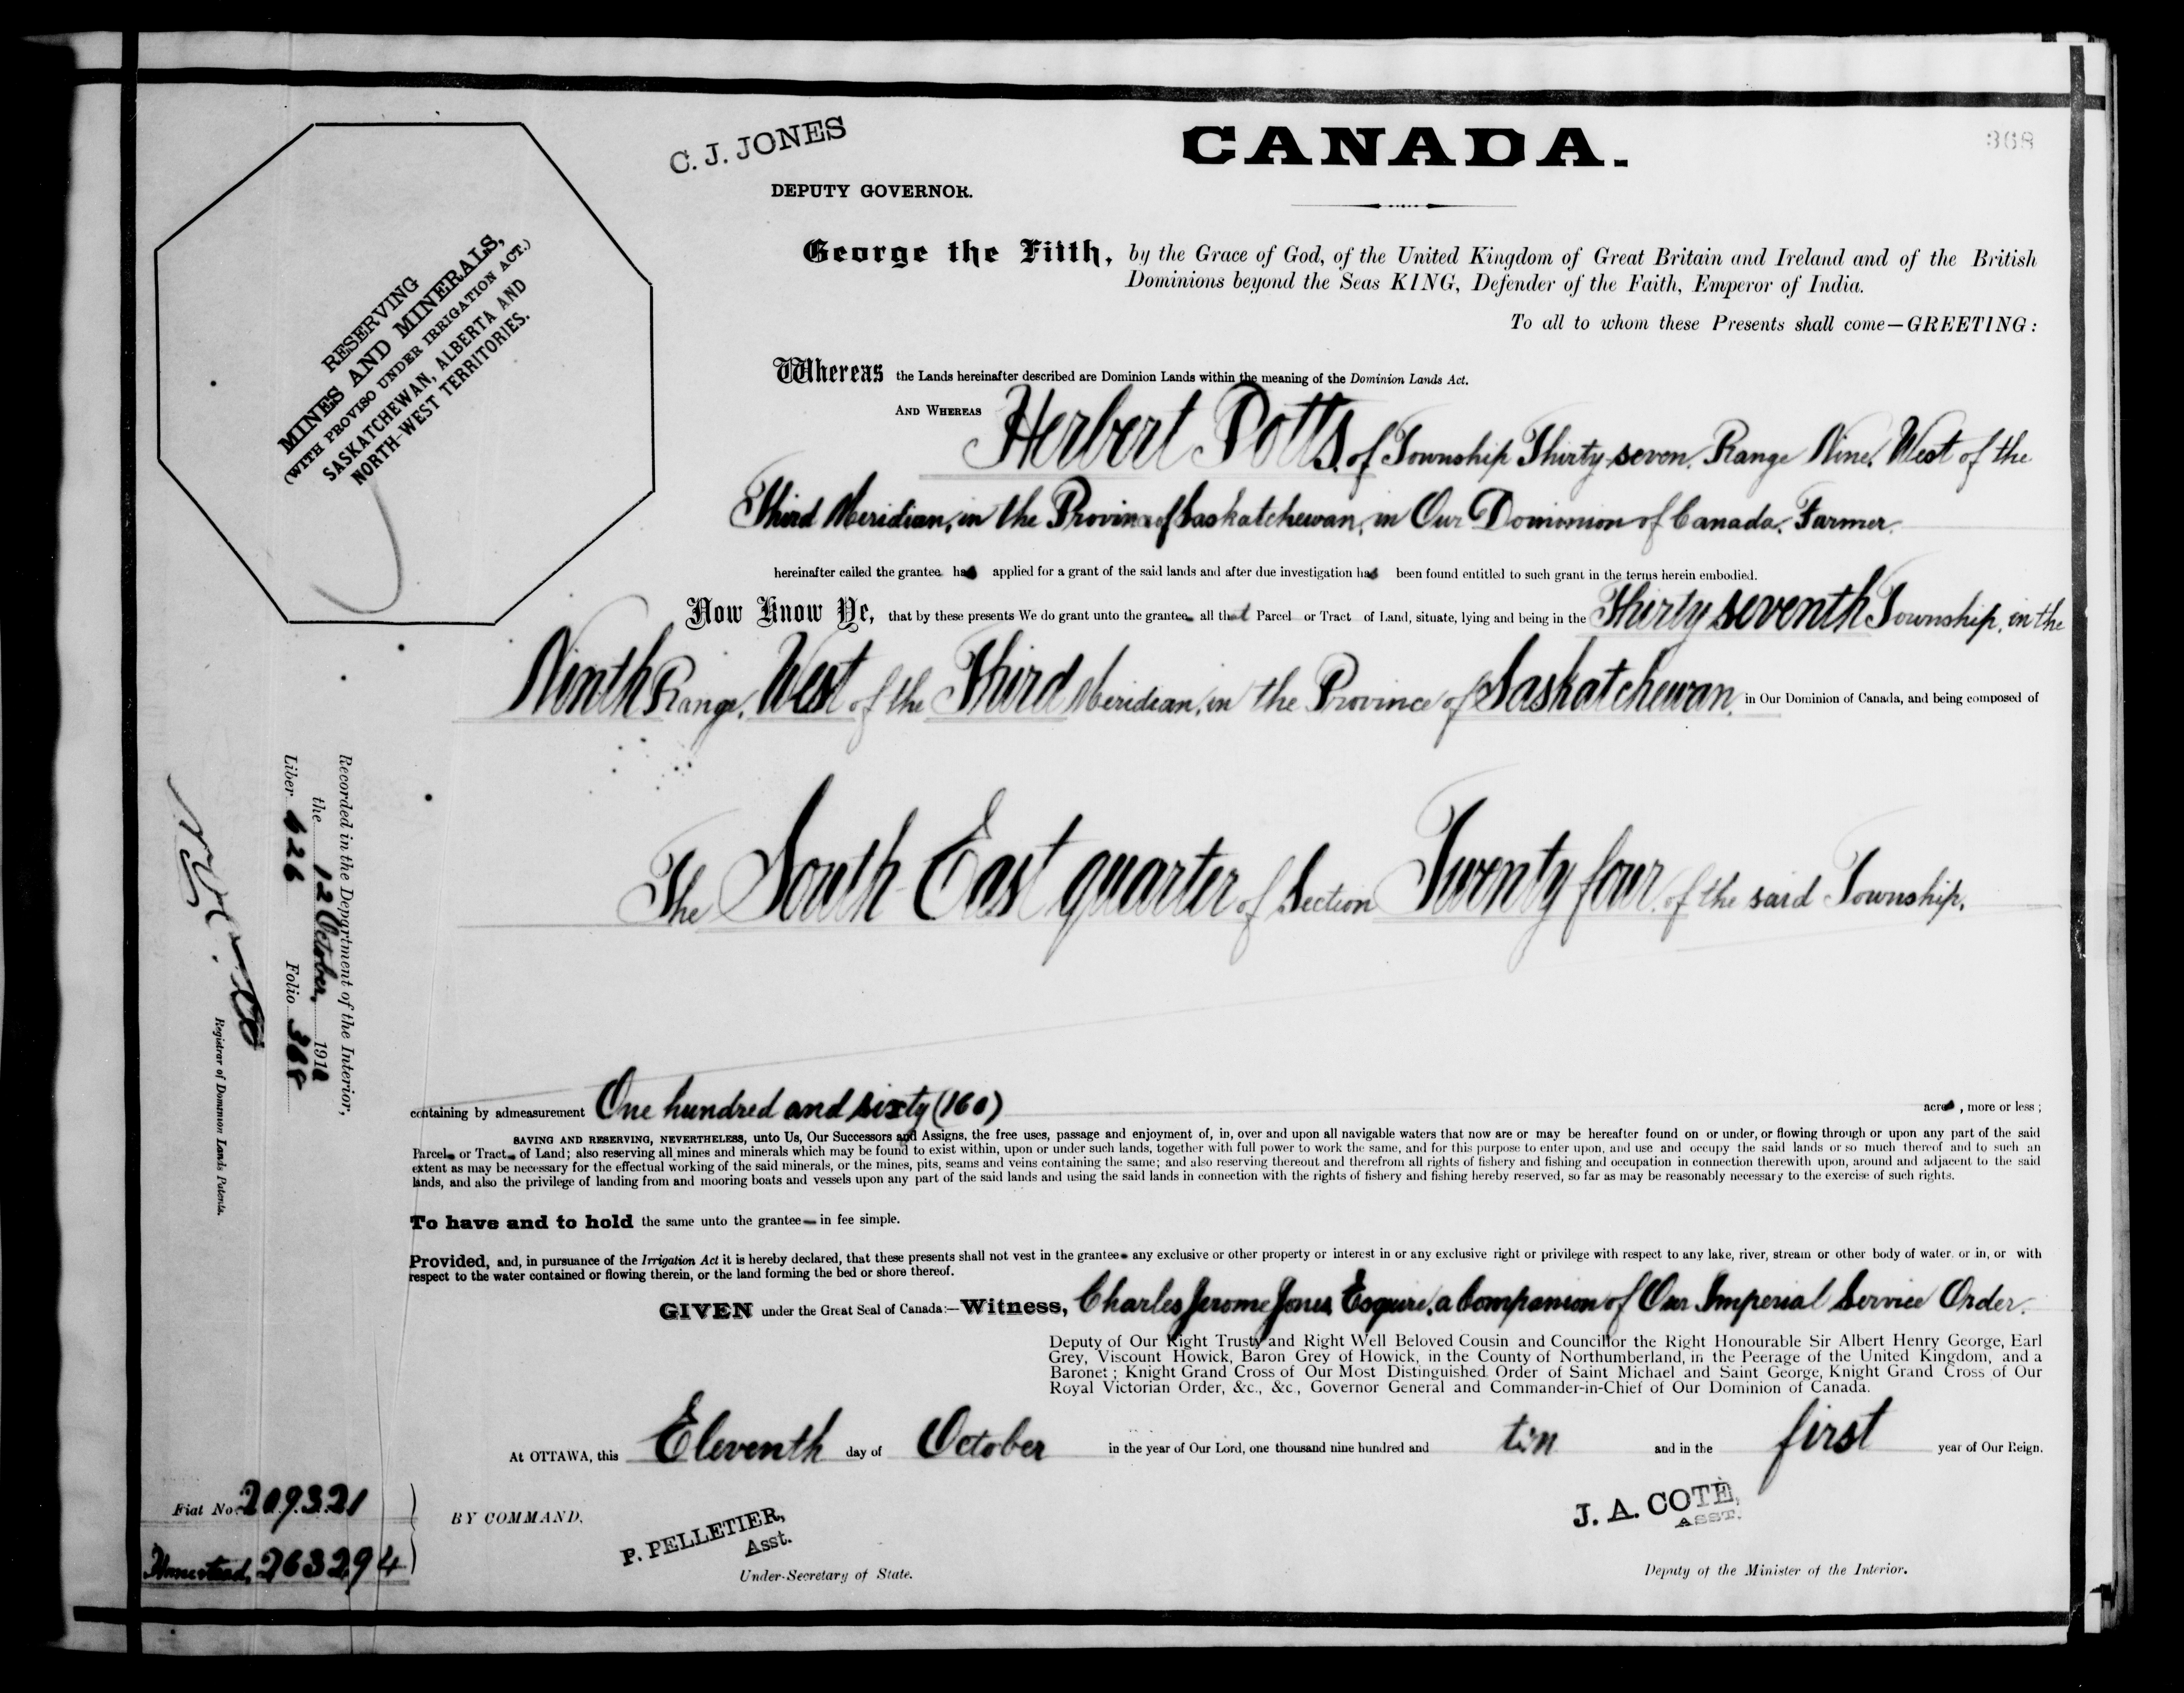 CANADA.
368
C. J. JONES
DEPUTY GOVERNOR.
George the Fifth, by the Grace of God, of the United Kingdom of Great Britain and Ireland and of the British
Dominions beyond the Seas KING, Defender of the Faith, Emperor of India.
To all to whom these Presents shall come—GREETING:
RESERVING
MINES AND MINERALS,
(WITH PROVISO UNDER IRRIGATION ACT.)
SASKATCHEWAN, ALBERTA AND
NORTH-WEST TERRITORIES.
Whereas the Lands hereinafter described are Dominion Lands within the meaning of the Dominion Lands Act.
AND WHEREAS Herbert Potts, of Township Thirty-seven, Range Nine, West of the
Third Meridian, in the Province of Saskatchewan, in Our Dominion of Canada, Farmer.
hereinafter called the grantee has applied for a grant of the said lands and after due investigation has been found entitled to such grant in the terms herein embodied.
Now Know Ye, that by these presents We do grant unto the grantee all that Parcel or Tract of Land, situate, lying and being in the Thirty seventh Township, in the
Ninth Range, West of the Third Meridian, in the Province of Saskatchewan, in Our Dominion of Canada, and being composed of
The South East quarter of Section Twenty four, of the said Township.
containing by admeasurement One hundred and sixty (160) acres, more or less;
SAVING AND RESERVING, NEVERTHELESS, unto Us, Our Successors and Assigns, the free uses, passage and enjoyment of, in, over and upon all navigable waters that now are or may be hereafter found on or under, or flowing through or upon any part of the said
Parcel or Tract of Land; also reserving all mines and minerals which may be found to exist within, upon or under such lands, together with full power to work the same, and for this purpose to enter upon, and use and occupy the said lands or so much thereof and to such an
extent as may be necessary for the effectual working of the said minerals, or the mines, pits, seams and veins containing the same; and also reserving thereout and therefrom all rights of fishery and fishing and occupation in connection therewith upon, around and adjacent to the said
lands, and also the privilege of landing from and mooring boats and vessels upon any part of the said lands and using the said lands in connection with the rights of fishery and fishing hereby reserved, so far as may be reasonably necessary to the exercise of such rights.
To have and to hold the same unto the grantee in fee simple.
Provided, and, in pursuance of the Irrigation Act it is hereby declared, that these presents shall not vest in the grantee any exclusive or other property or interest in or any exclusive right or privilege with respect to any lake, river, stream or other body of water, or in, or with
respect to the water contained or flowing therein, or the land forming the bed or shore thereof.
GIVEN under the Great Seal of Canada:—Witness, Charles Jerome Jones Esquire, a Companion of Our Imperial Service Order.
Deputy of Our Right Trusty and Right Well Beloved Cousin and Councillor the Right Honourable Sir Albert Henry George, Earl
Grey, Viscount Howick, Baron Grey of Howick, in the County of Northumberland, in the Peerage of the United Kingdom, and a
Baronet; Knight Grand Cross of Our Most Distinguished Order of Saint Michael and Saint George, Knight Grand Cross of Our
Royal Victorian Order, &c., &c., Governor General and Commander-in-Chief of Our Dominion of Canada.
At OTTAWA, this Eleventh day of October in the year of Our Lord, one thousand nine hundred and ten and in the first year of Our Reign.
BY COMMAND,
P. PELLETIER,
Asst.
Under-Secretary of State.
J. A. COTÉ,
ASST.
Deputy of the Minister of the Interior.
Recorded in the Department of the Interior,
the 12 October, 1910
Liber 626 Folio 368
Registrar of Dominion Lands Patents.
Fiat No. 209321
Homestead, 263294